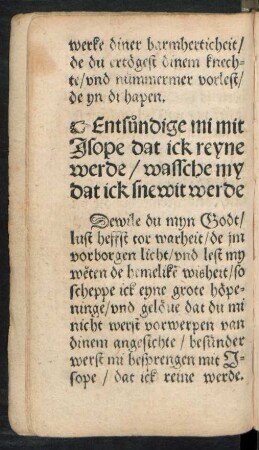 werke diner barmherticheit/
de du ertögest dinem knech-
te/vnd nümmermer vorlest/
de yn di hapen.
☞Entsůndige mi mit
Jsope dat ick reyne
werde / wassche my
dat ick snewit werde
Dewile du myn Godt/
lust heffst tor warheit/de jm
vorborgen licht/vnd lest my
wēten de hemelikē wisheit/so
scheppe ick eyne grote höpe-
ninge/vnd gelöue dat du mi
nicht werst vorwerpen van
dinem angesichte / besünder
werst mi besprengen mit J-
sope / dat ick reine werde.